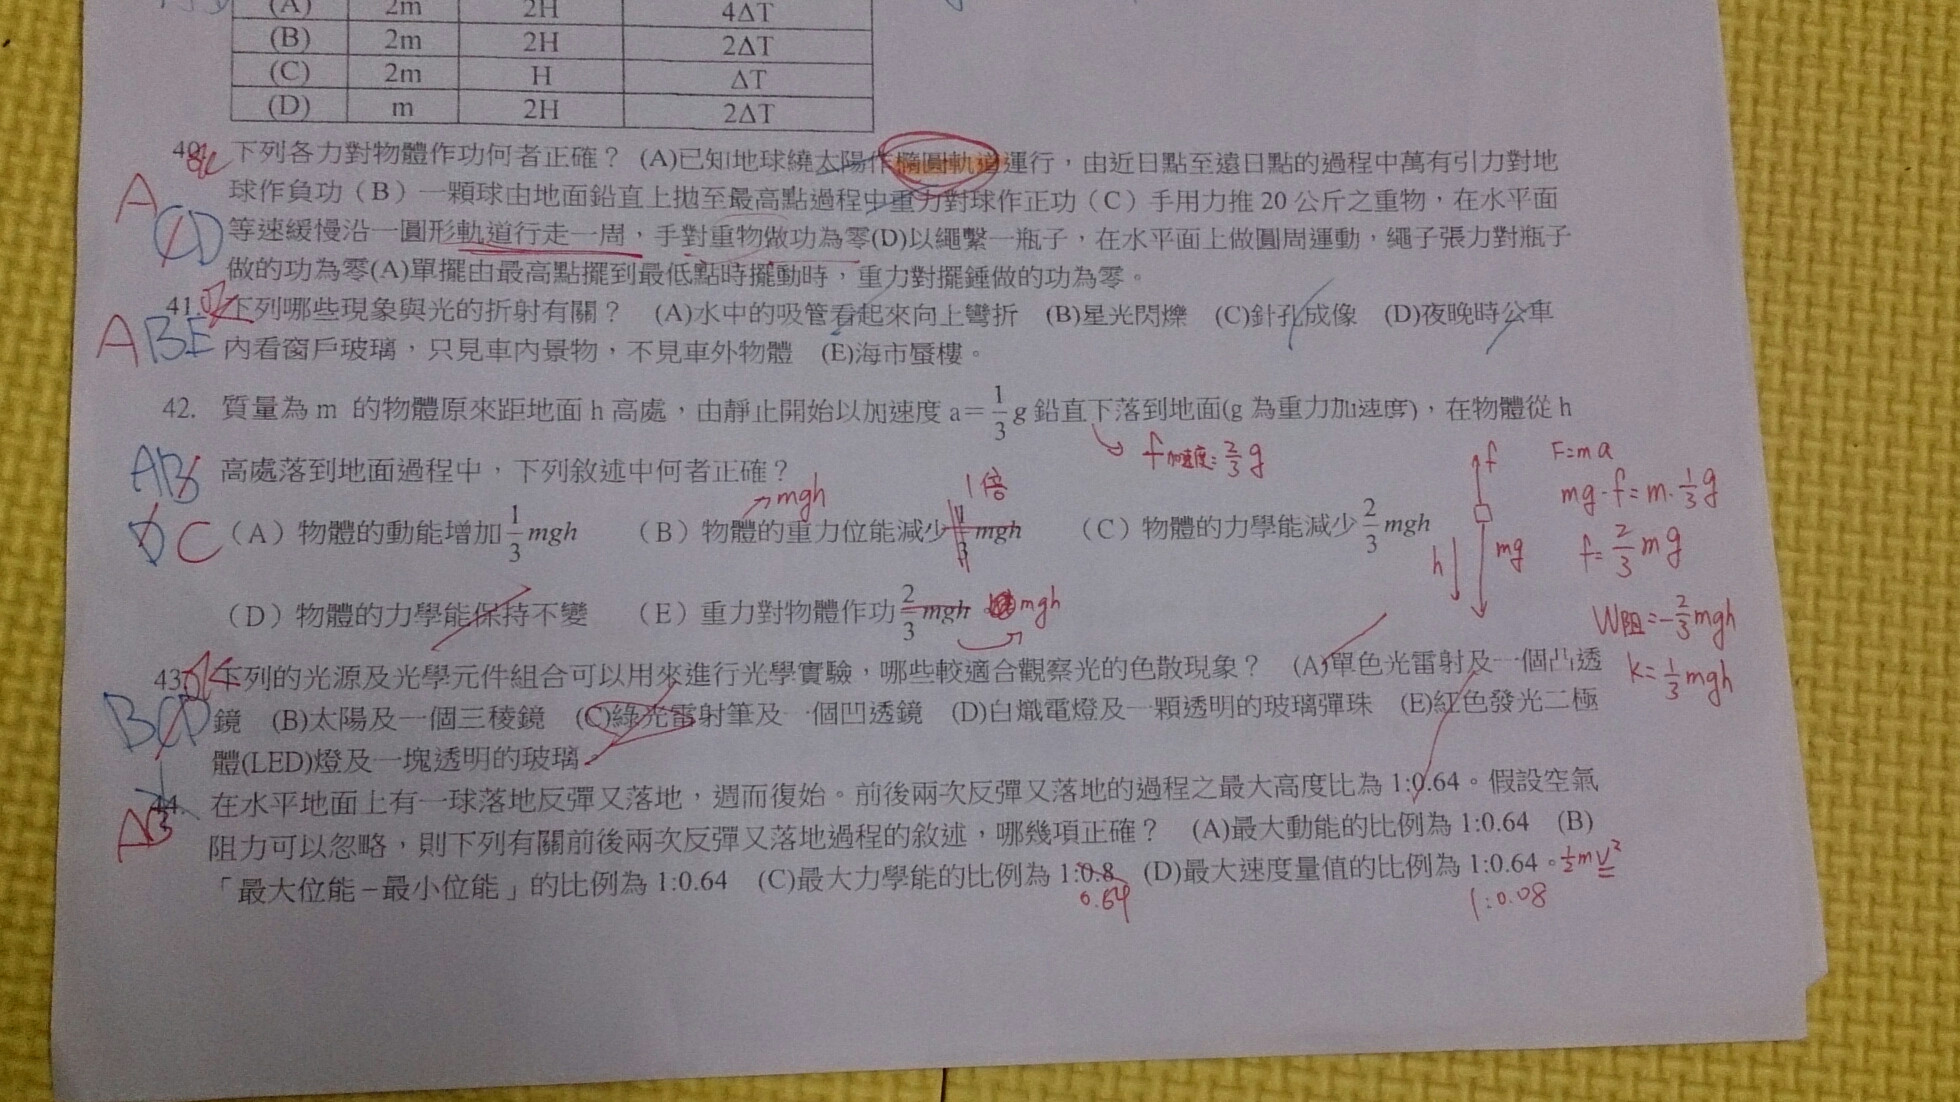 (A) 2m 2H 4ΔT
(B) 2m 2H 2ΔT
(C) 2m H ΔT
(D) m 2H 2ΔT
40. 下列各力對物體作功何者正確？ (A)已知地球繞太陽作橢圓軌道運行，由近日點至遠日點的過程中萬有引力對地
A 球作負功（B）一顆球由地面鉛直上拋至最高點過程中重力對球作正功（C）手用力推 20 公斤之重物，在水平面
CD 等速緩慢沿一圓形軌道行走一周，手對重物做功為零(D)以繩繫一瓶子，在水平面上做圓周運動，繩子張力對瓶子
做的功為零(A)單擺由最高點擺到最低點時擺動時，重力對擺錘做的功為零。
41. 下列哪些現象與光的折射有關？ (A)水中的吸管看起來向上彎折 (B)星光閃爍 (C)針孔成像 (D)夜晚時公車
ABE 內看窗戶玻璃，只見車內景物，不見車外物體 (E)海市蜃樓。
42. 質量為 m 的物體原來距地面 h 高處，由靜止開始以加速度 a＝1/3 g 鉛直下落到地面(g 為重力加速度)，在物體從 h
f加速度：2/3 g
AB 高處落到地面過程中，下列敘述中何者正確？
mgh
1倍
C（A）物體的動能增加 1/3 mgh （B）物體的重力位能減少 1/3 mgh （C）物體的力學能減少 2/3 mgh
（D）物體的力學能保持不變 （E）重力對物體作功 2/3 mgh mgh
f
mg
h
F=ma
mg-f=m·1/3 g
f=2/3 mg
W阻=-2/3 mgh
k=1/3 mgh
43. 下列的光源及光學元件組合可以用來進行光學實驗，哪些較適合觀察光的色散現象？ (A)單色光雷射及一個凸透
BCD 鏡 (B)太陽及一個三稜鏡 (C)綠光雷射筆及一個凹透鏡 (D)白熾電燈及一顆透明的玻璃彈珠 (E)紅色發光二極
體(LED)燈及一塊透明的玻璃。
44. 在水平地面上有一球落地反彈又落地，週而復始。前後兩次反彈又落地的過程之最大高度比為 1:0.64。假設空氣
AB 阻力可以忽略，則下列有關前後兩次反彈又落地過程的敘述，哪幾項正確？ (A)最大動能的比例為 1:0.64 (B)
「最大位能－最小位能」的比例為 1:0.64 (C)最大力學能的比例為 1:0.8 (D)最大速度量值的比例為 1:0.64。 1/2 mv²
0.64 1:0.08